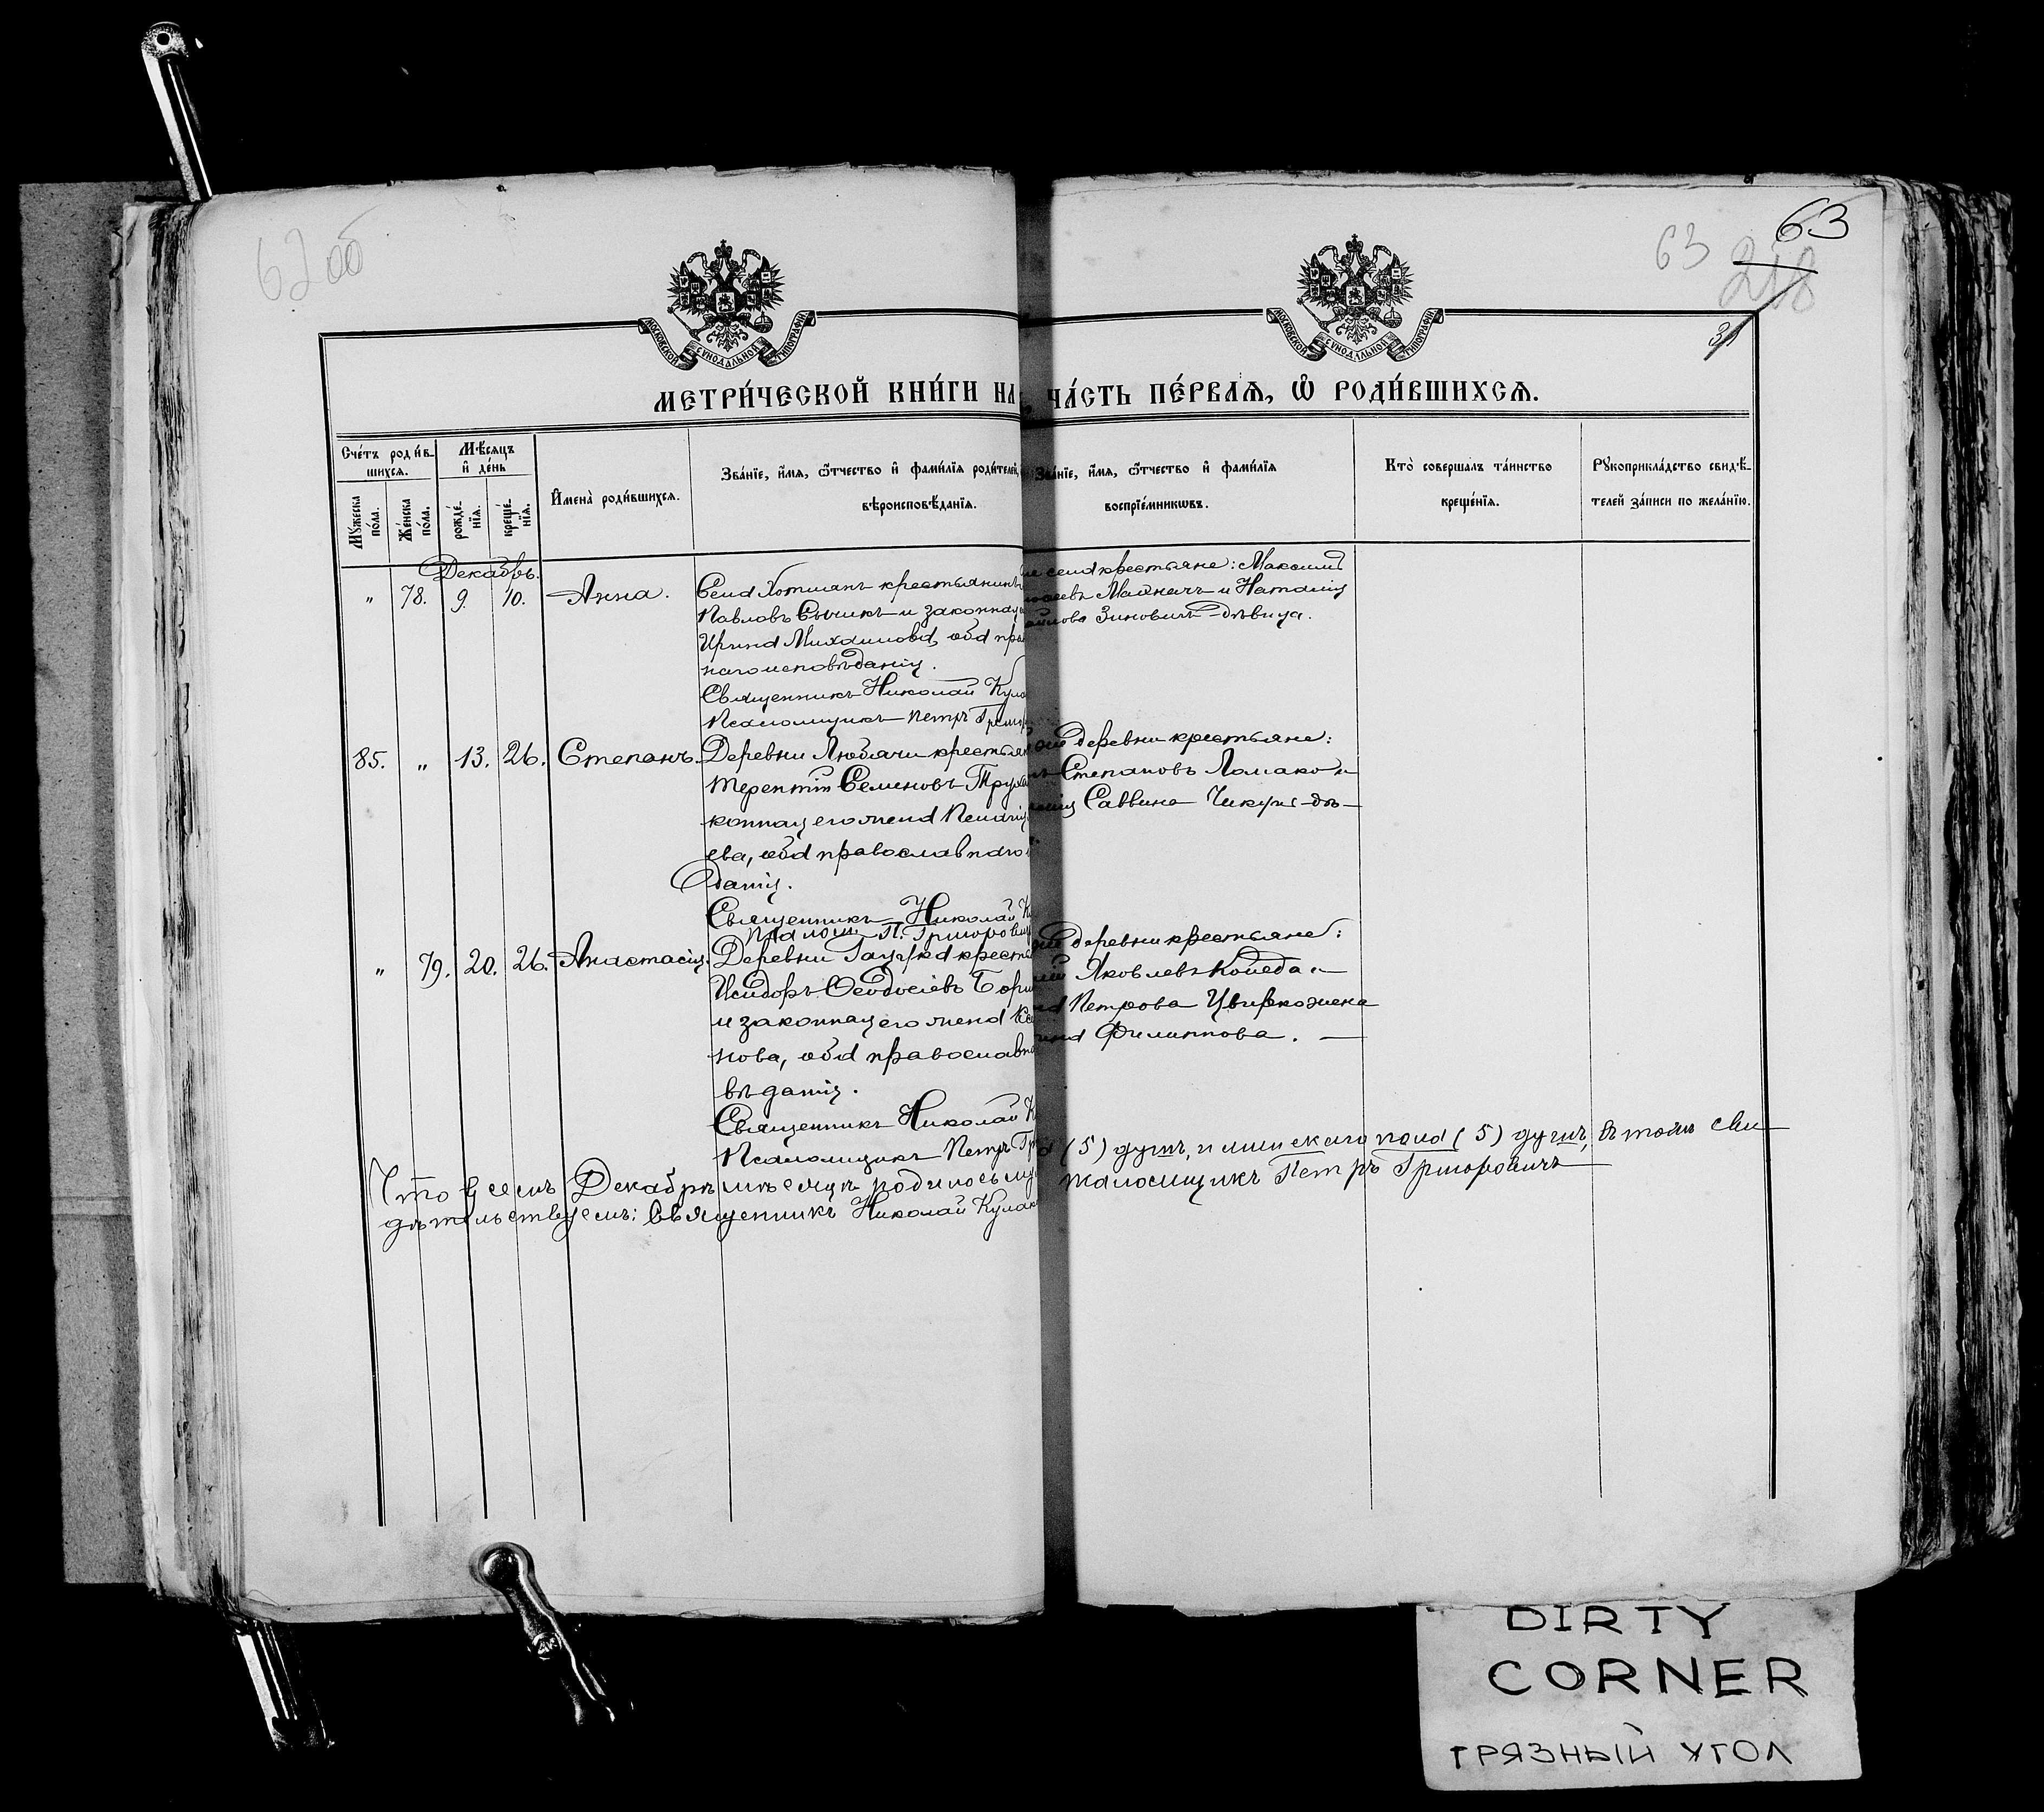 62об
63
63
218
31
МОСКОВСКОЙ СУНОДАЛЬНОЙ ТИПОГРАФІИ
МОСКОВСКОЙ СУНОДАЛЬНОЙ ТИПОГРАФІИ
МЕТРИ́ЧЕСКОЙ КНИ́ГИ НА
ЧА́СТЬ ПЕ́РВАЯ, Ѿ РОДИ́ВШИХСЯ.
Сче́тъ роди́в-
шихся.
Му́жеска по́ла.
Же́нска по́ла.
Мѣ́сяцъ
и҆ де́нь
рожде́-
нія.
креще́-
нія.
И҆мена̀ роди́вшихся.
Зва́ніе, и҆́мя, ѻ҆́тчество и҆ фами́лія роди́телей,
вѣроисповѣ́данія.
Зва́ніе, и҆́мя, ѻ҆́тчество и҆ фами́лія
воспріе́мникѡвъ.
Кто̀ соверша́лъ та́инство
креще́нія.
Рукоприкла́дство свидѣ́-
телей за́писи по жела́нію.
Декабрь.
" 78. 9. 10. Анна.
Села Хотшанъ крестьянинъ
Павловъ Сычикъ и законная
Ирина Михаилова, оба пра
наго исповѣданія.
Священникъ Николай Кула
Псаломщикъ Петръ Григор
села крестьяне: Максимъ
Махначъ и Наталія
Зиновичъ дѣвица.
85. " 13. 26. Степанъ.
Деревни Любачи крестьян
Терентій Семеновъ Труха
конная его жена Пелагія
ева, оба православнаго
данія.
Священникъ Николай К
Псаломщ. П. Григорович
деревни крестьяне:
Степановъ Ломако и
Саввина Чикунъ дѣ-
" 79. 20. 26. Анастасія.
Деревни крестья
Исидоръ Ѳеодосіевъ
и законная его жена Ксе
нова, оба православна
вѣданія.
Священникъ Николай К
Псаломщикъ Петръ Гр
деревни крестьяне:
Яковлевъ Коледа и
Петрова жена
Филиппова.
Что въ семъ Декабрѣ мѣсяцѣ родилось му
а (5) душъ, и женскаго пола (5) душъ, въ томъ сви
дѣтельствуемъ: Священникъ Николай Кулак
Псаломщикъ Петръ Григоровичъ
DIRTY
CORNER
ГРЯЗНЫЙ УГОЛ